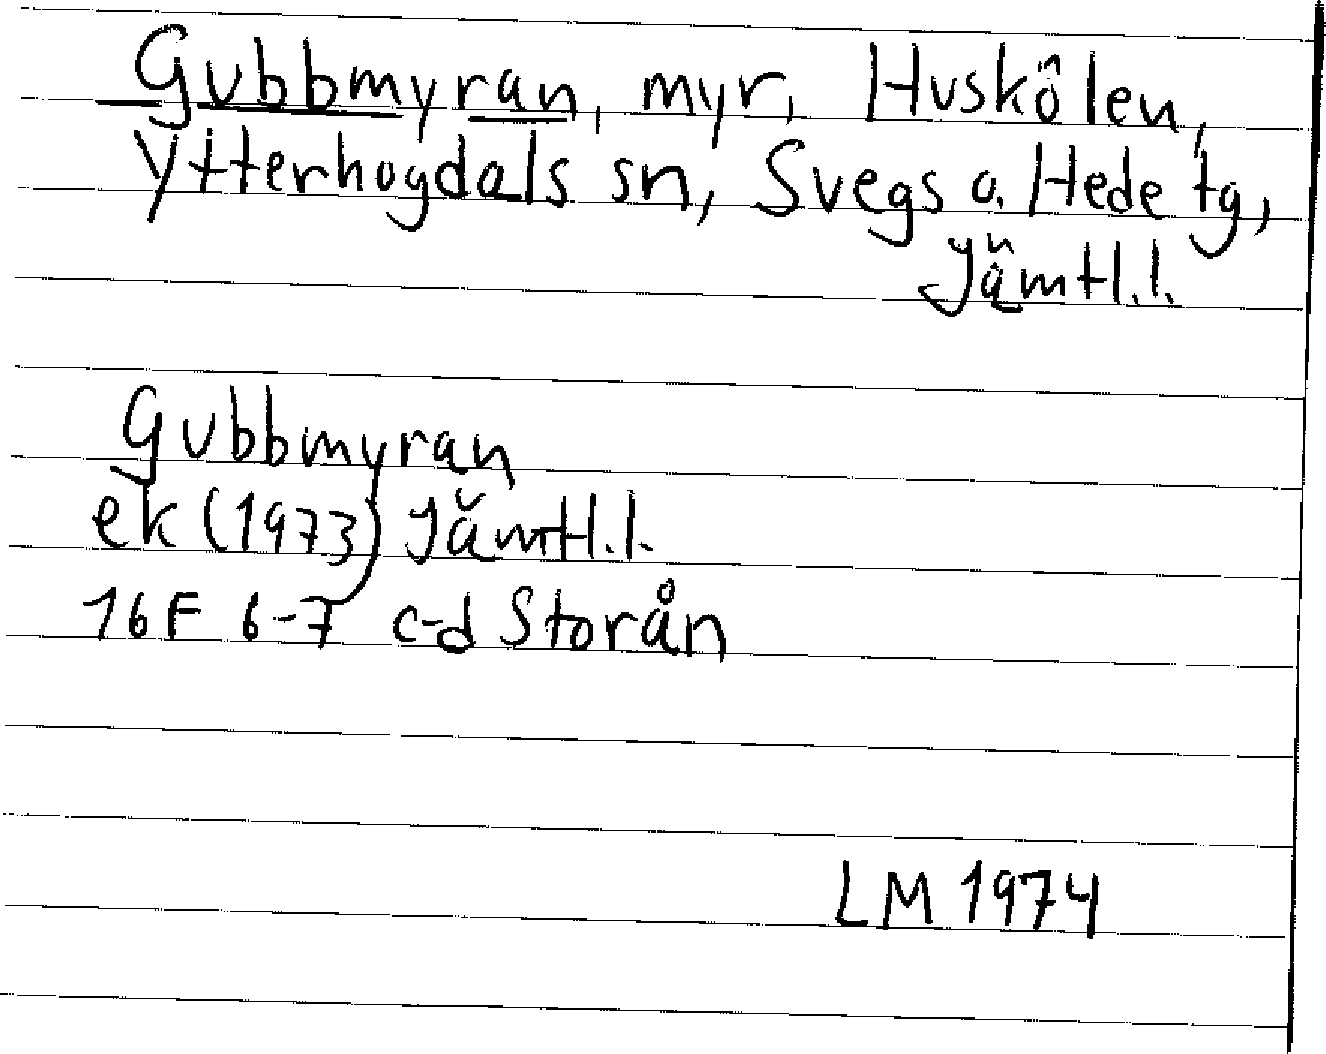 Gubbmyran, myr, Huskölen,
Ytterhogdals sn, Svegs o. Hede tg,
Jämtl.l.
Gubbmyran
ek (1973) Jämtl.l.
16F 6-7 c-d Storån
LM 1974